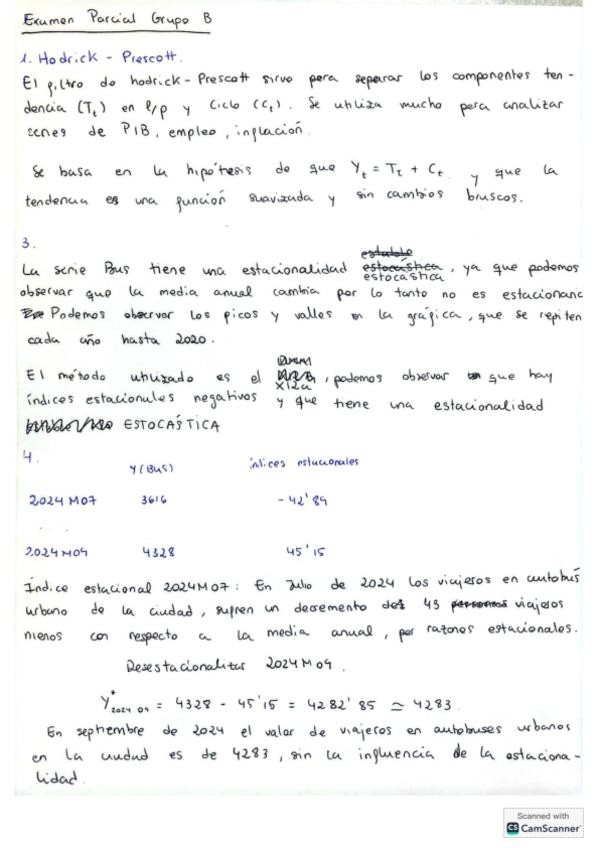 Examen Parcial Grupo B
1. Hodrick - Prescott.
El filtro de hodrick - Prescott sirve para separar los componentes ten-
dencia (Tt) en l/p y Ciclo (Ct). Se utiliza mucho para analizar
series de PIB, empleo, inflación.
Se basa en la hipótesis de que Yt = Tt + Ct. y que la
tendencia es una función suavizada y sin cambios bruscos.
3.
estable
La serie Bus tiene una estacionalidad estocástica, ya que podemos
estocástica
observar que la media anual cambia por lo tanto no es estacionaric
Podemos observar los picos y valles en la gráfica, que se repiten
cada año hasta 2020.
El método utilizado es el X12a, podemos observar que hay
índices estacionales negativos y que tiene una estacionalidad
ESTOCÁSTICA
4.
Y (BUS) índices estacionales
2024 M07 3616 - 42'89
2024 M09 4328 45'15
Índice estacional 2024M07: En Julio de 2024 los viajeros en autobús
urbano de la ciudad, sufren un decremento de 43 personas viajeros
menos con respecto a la media anual, por razones estacionales.
Desestacionalizar 2024 M09.
Y*2024 09 = 4328 - 45'15 = 4282'85 ≃ 4283.
En septiembre de 2024 el valor de viajeros en autobuses urbanos
en la ciudad es de 4283, sin la influencia de la estaciona-
lidad.
Scanned with
CS CamScanner